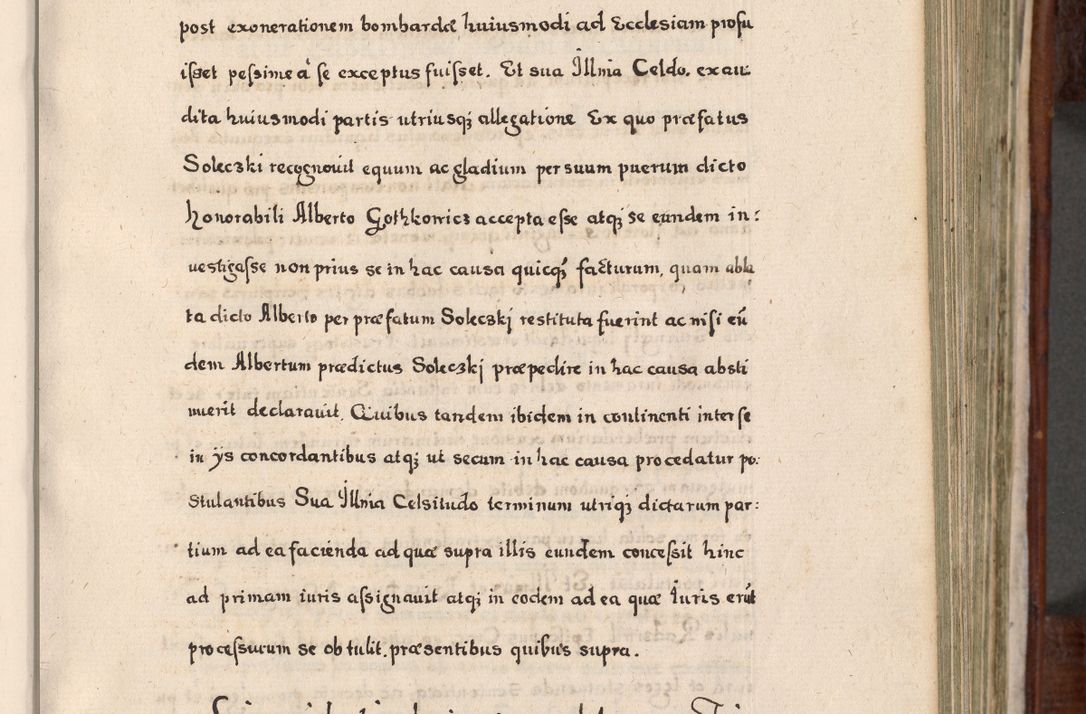 post exonerationem bombardæ huiusmodi ad Ecclesiam profu
isset pessime á se exceptus fuisset. Et sua Illnia Celdo. exau:
dita huiusmodi partis utriusqꝫ allegatione Ex quo præfatus
Soleczki recognouit equum ac gladium per suum puerum dicto
honorabili Alberto Gothkowicz accepta esse atqꝫ se eundem in:
uestigasse non prius se in hac causa quicqꝫ facturum, quam abla
ta dicto Alberto per præfatum Soleczkj restituta fuerint ac nisi eũ
dem Albertum prædictus Soleczkj præpedire in hac causa absti
nuerit declarauit. Quibus tandem ibidem in continenti inter se
in ÿs concordantibus atqꝫ ut secum in hac causa procedatur po:
stulantibus Sua Illnia Celsitudo terminum utriqꝫ dictarum par:
tium ad ea facienda ad quæ supra illis eundem concessit hinc
ad primam iuris assignauit atqꝫ in eodem ad ea quæ Iuris erũt
processurum se obtulit. præsentibus quibus supra.